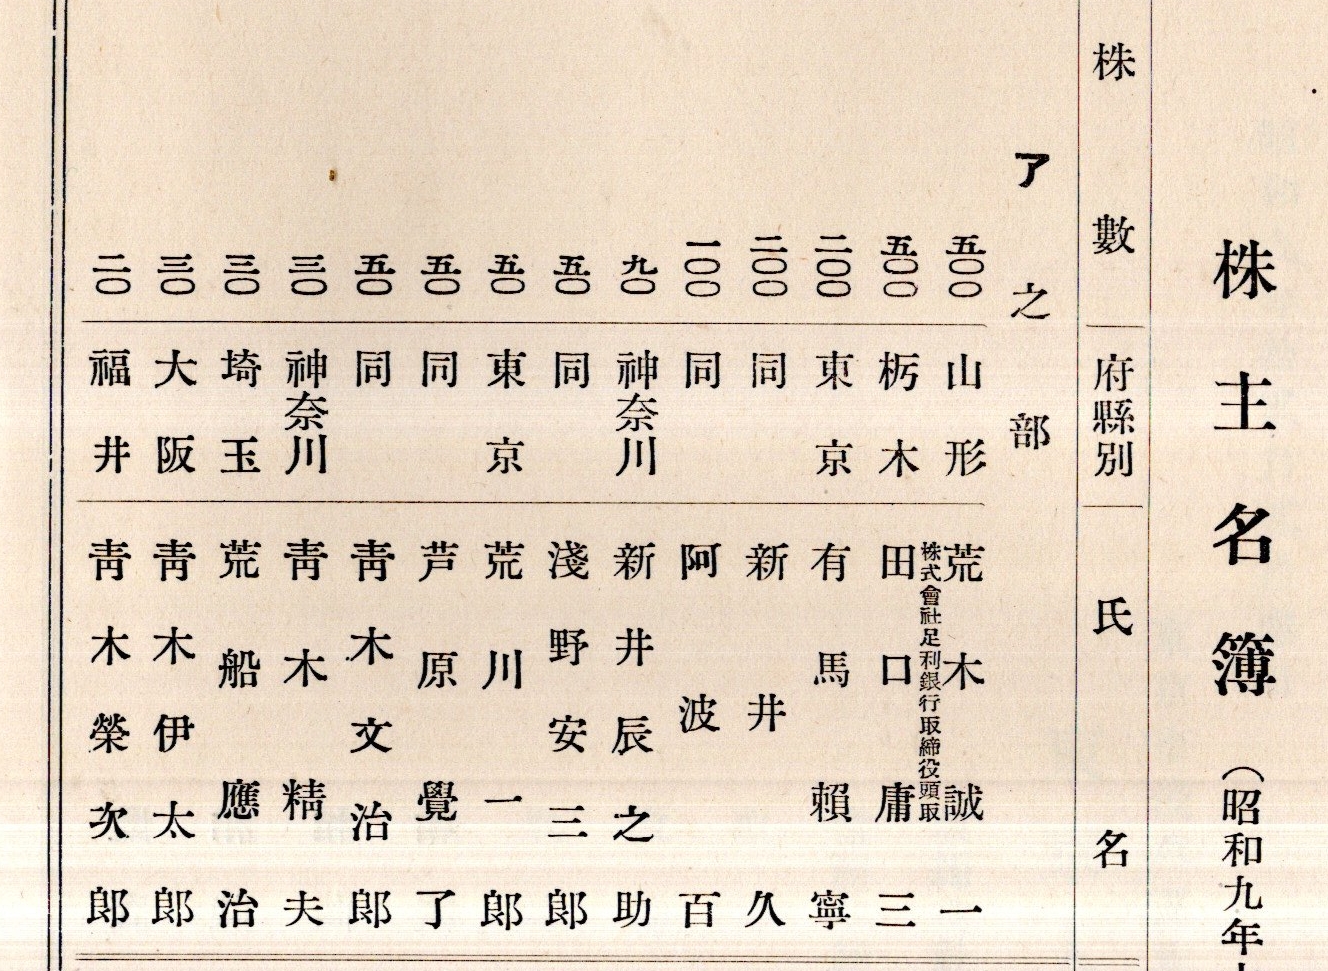 株主名簿 (昭和九年
株數 府縣別 氏名
ア之部
五〇〇 山形 荒木誠一
五〇〇 栃木 株式會社足利銀行取締役頭取 田口庸三
二〇〇 東京 有馬賴寧
二〇〇 同 新井久
一〇〇 同 阿波百
九〇 神奈川 新井辰之助
五〇 同 淺野安三郎
五〇 東京 荒川一郎
五〇 同 芦原覺了
五〇 同 靑木文治郎
三〇 神奈川 靑木精夫
三〇 埼玉 荒船應治
三〇 大阪 靑木伊太郎
二〇 福井 靑木榮次郎